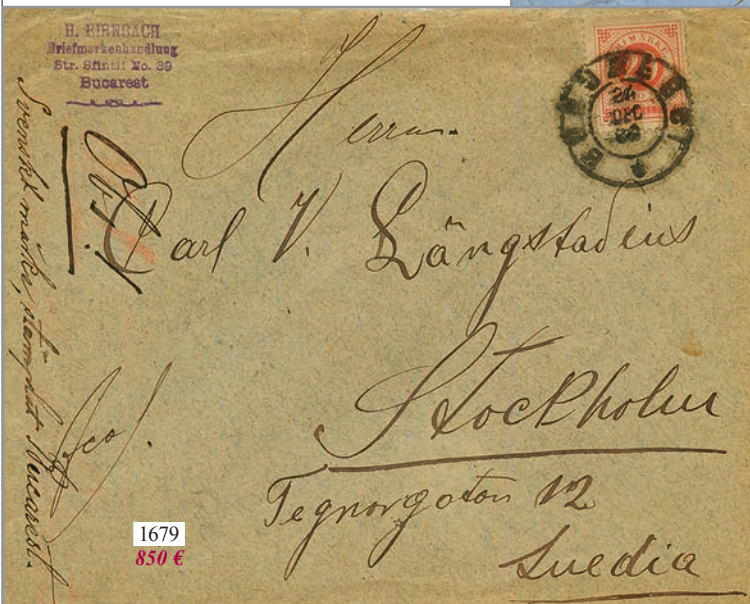 H. BIRNBACH
Briefmarkenhandlung
Str. Sfintii No. 39
Bucarest
20
BUCUREST
24
DEC
88
Herrn
Carl V. Långstadius
Stockholm
Tegnorgoton 12
Suedia
Svenskt märke, stämplat Bucarest.
1679
850 €